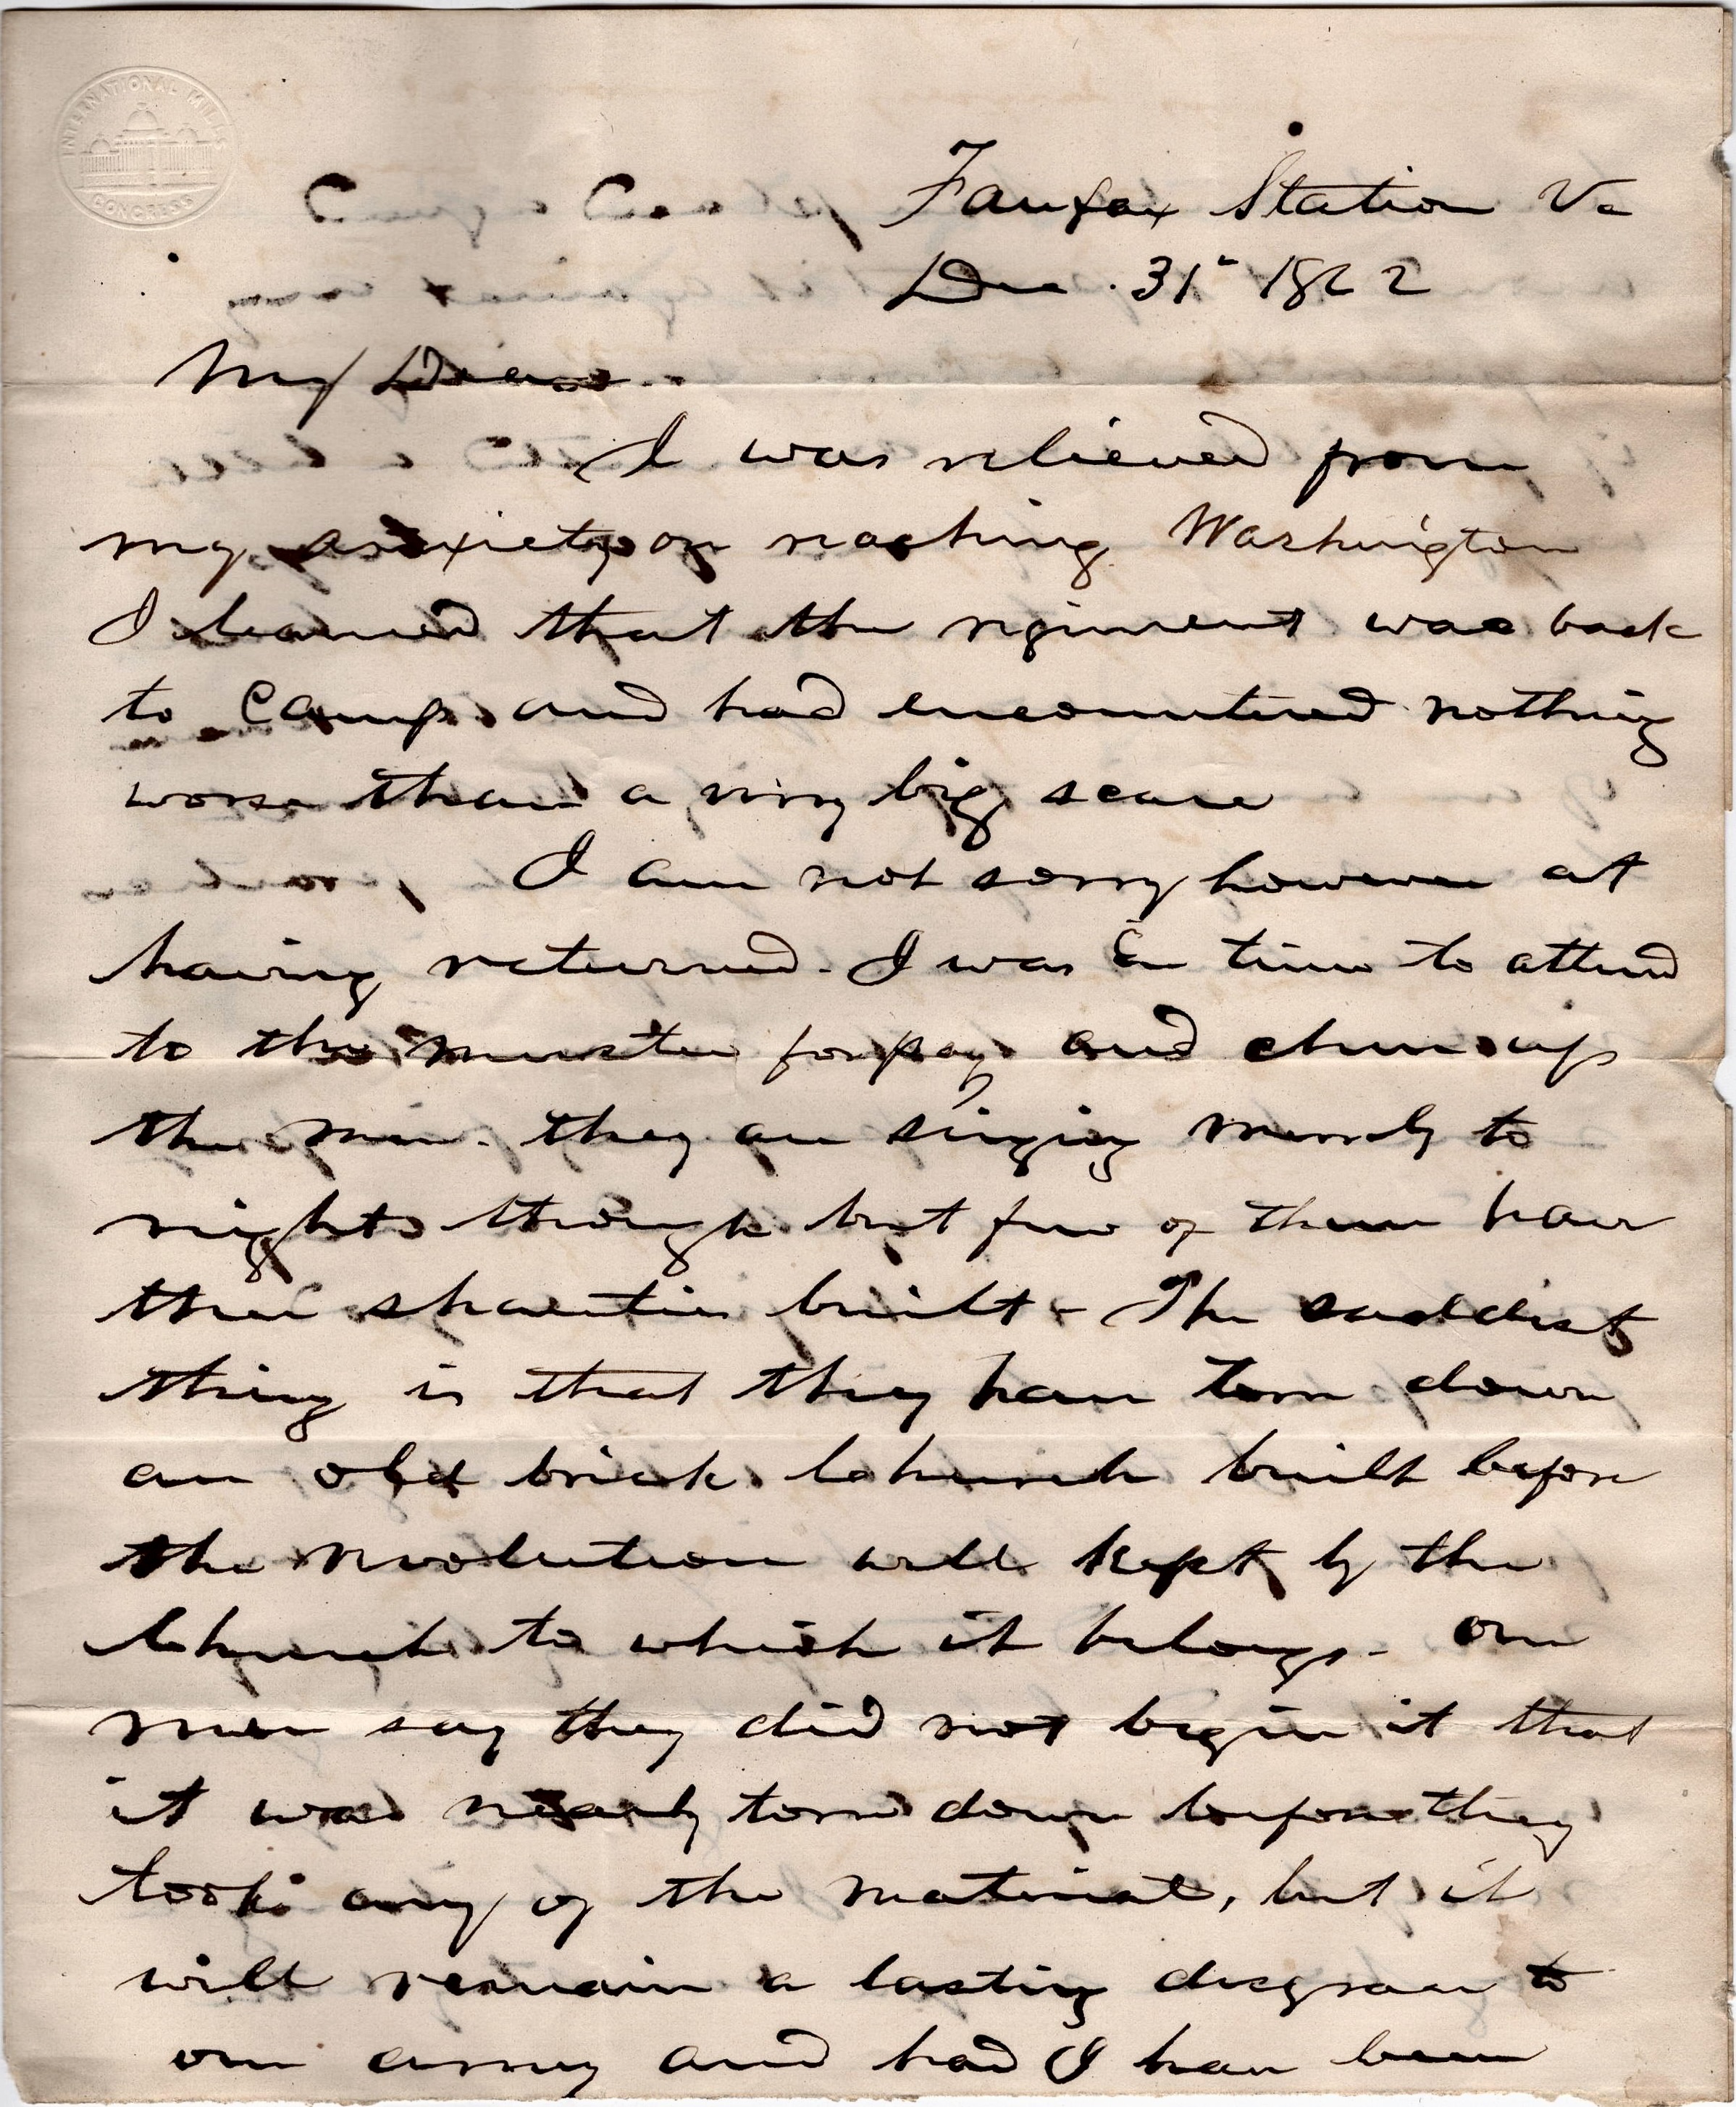 INTERNATIONAL MILLS
CONGRESS
Fairfax Station Va
Dec. 31st 1862
My Dear
I was relieved from
my anxiety on reaching Washington
I learned that the regiment was back
to Camp and had encountered nothing
worse than a very big scare
I am not sorry however at
having returned. I was in time to attend
to the muster for pay and cheer up
the men. they are singing merrily to
night though but few of them have
their shanties built - The saddest
thing is that they have torn down
an old brick Church built before
the revolution well kept by the
Church to which it belongs - Our
men say they did not begin it that
it was nearly torn down before they
took any of the material, but it
will remain a lasting disgrace to
our army and had I have been